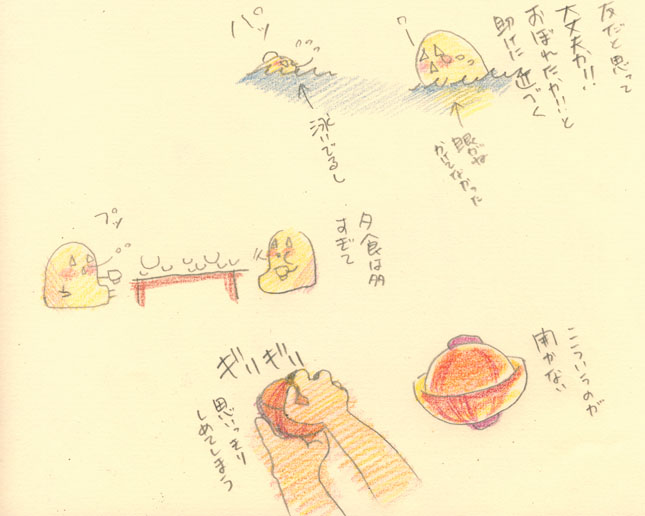 友だと思って
大丈夫か!!
おぼれたか!!と
助けに近づく
眼がね
かけてなかった
パッ
泳いでるし
夕食は多
すぎて
プッ
こういうのが
開かない
ギリギリ
思いっきり
しめてしまう